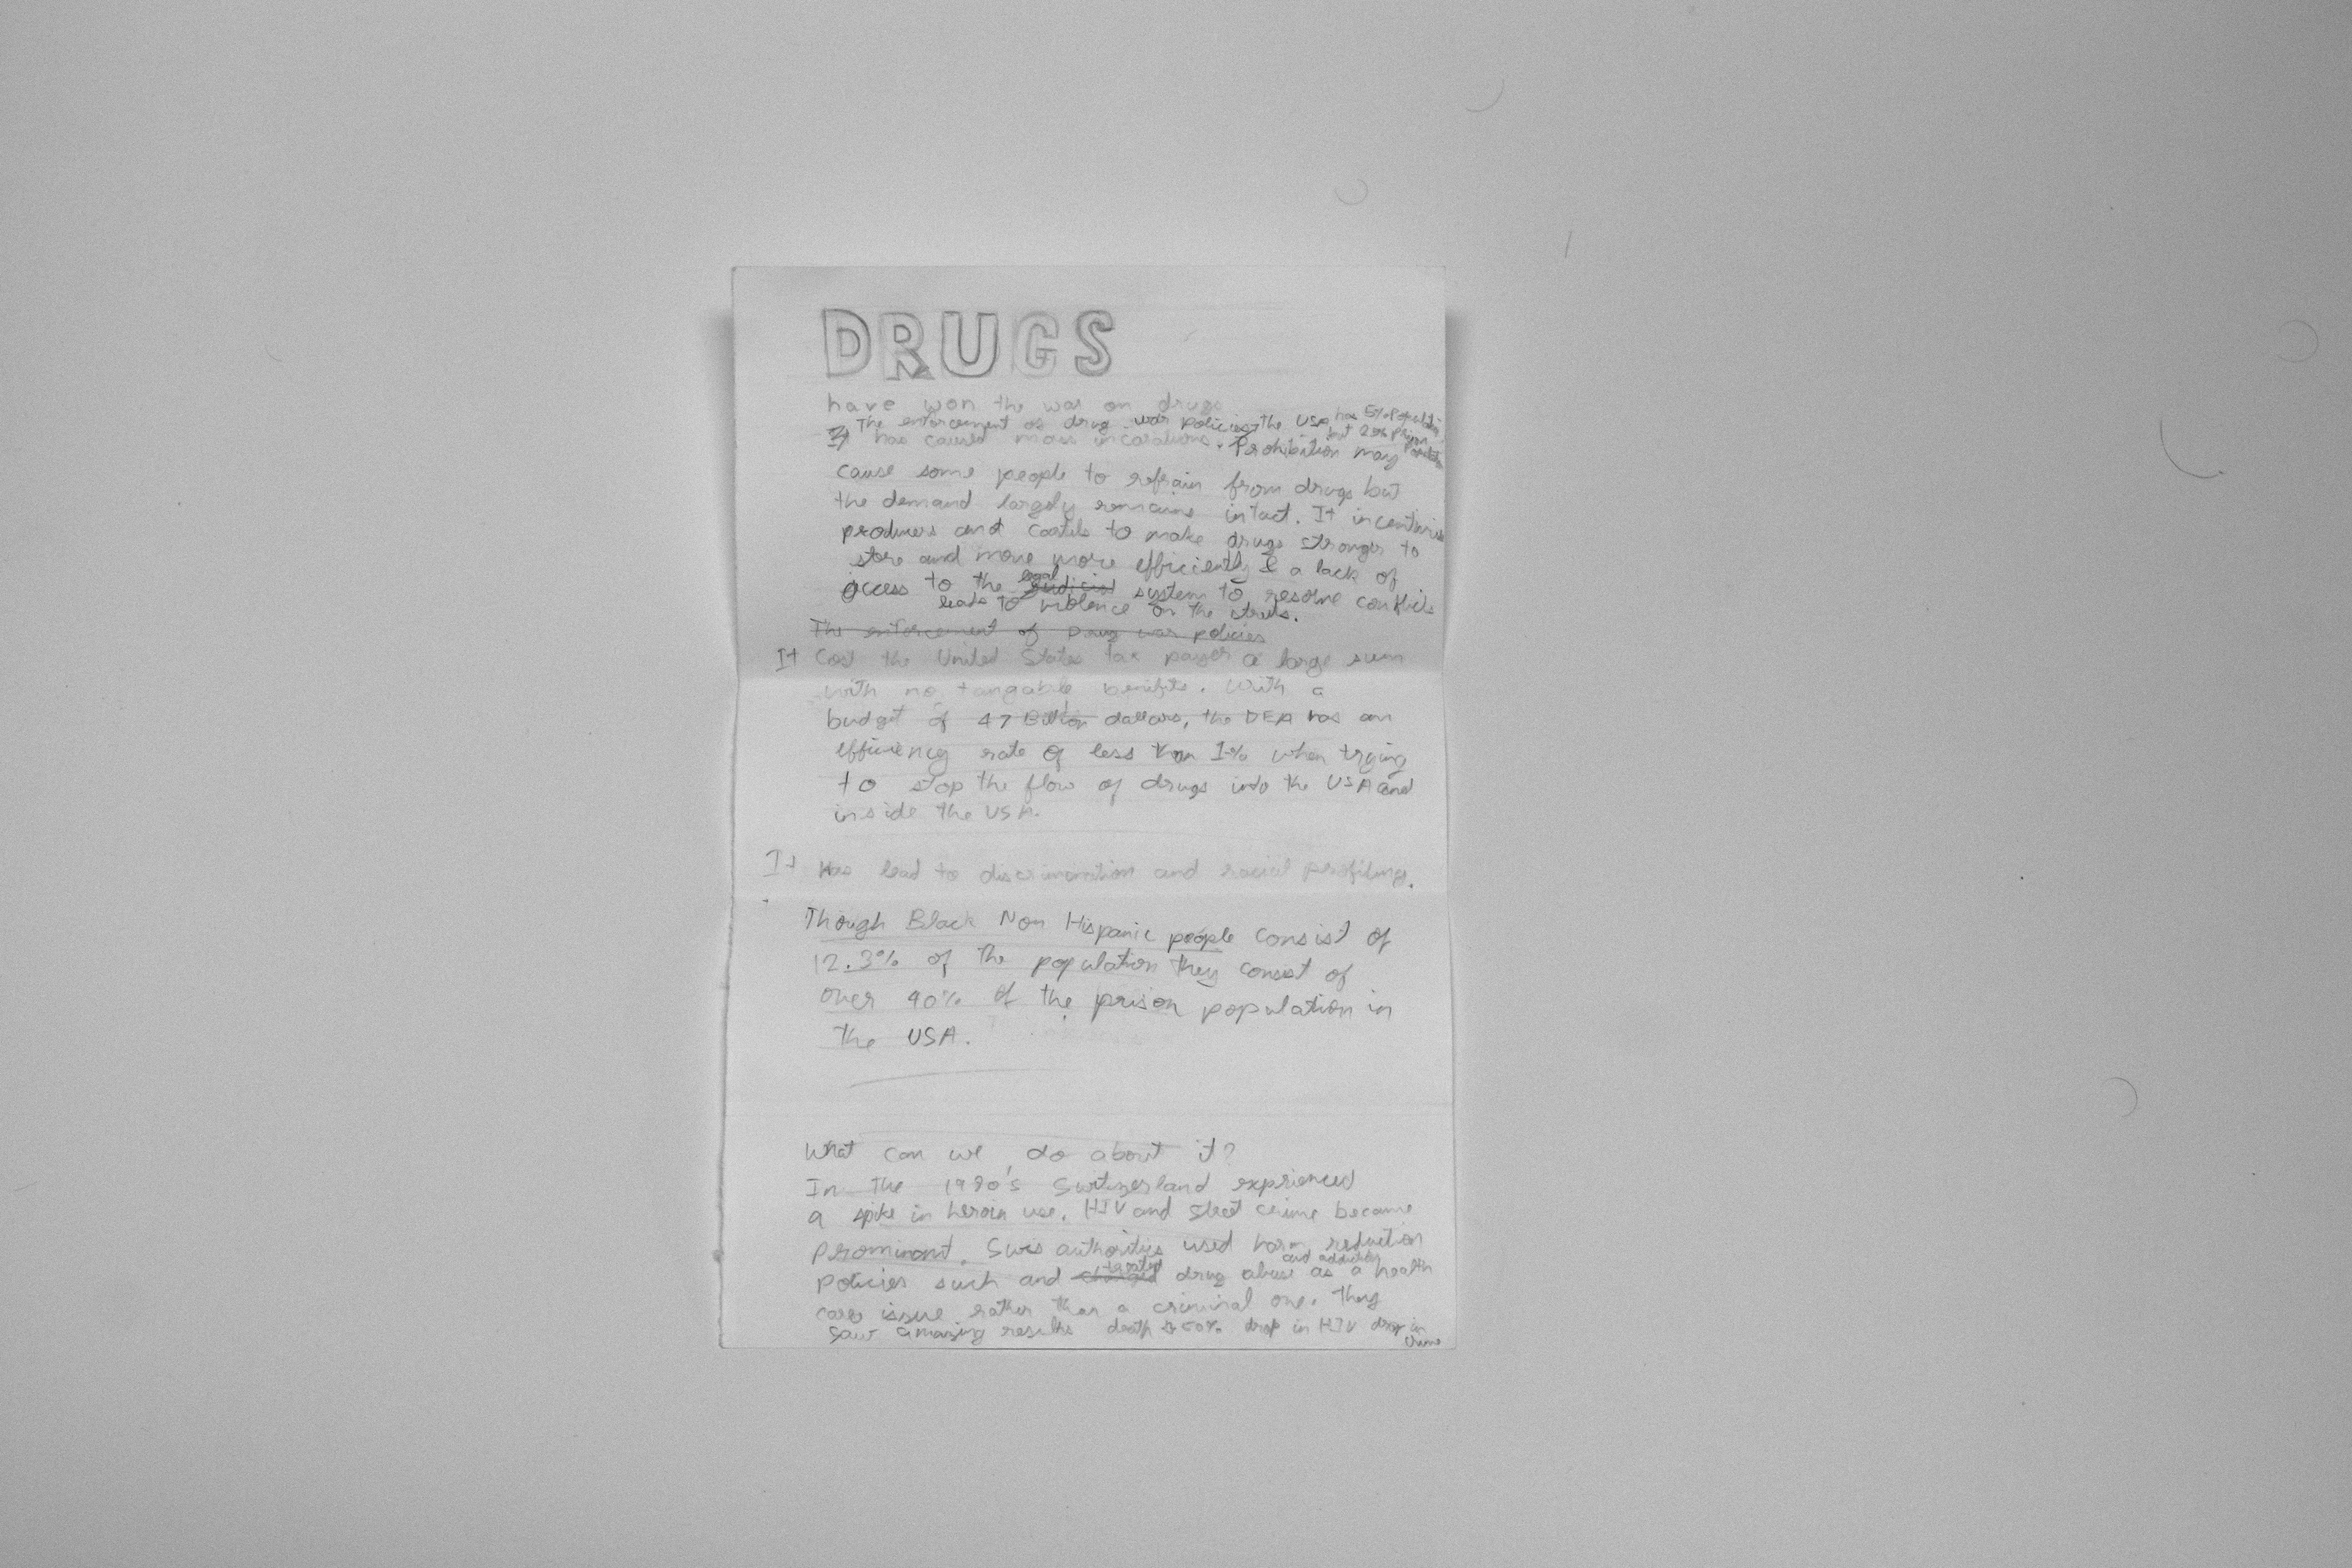 DRUGS
have won the war on drugs
The enforcement of drug war policies the USA has 5% Population
It has caused mass incarations. but 25% prison
Prohibition may
cause some people to refrain from drugs but
the demand largely remains intact. It
producers and cartels to make drugs stronger to
store and move more efficiently & a lack of
access to the legal system to resolve conflicts
leads to violence on the streets.
The enforcement of Drug war policies
It Cost the United States tax payer a large sum
with no tangable benifits. With a
budget of 47 Billion dollars, the DEA has an
efficiency rate of less than 1% when trying
to stop the flow of drugs into the USA and
inside the USA.
It Has lead to discrimination and racial profiling.
Though Black Non Hispanic people consist of
12.3% of the population they consist of
over 40% of the prison population in
the USA.
What can we do about it?
In the Switzerland experienced
a spike in heroin use. HIV and street crime became
prominant. Swis authorities used harm reduction
and
policies such and drug abuse as a health
care issue rather than a criminal one. They
saw amazing results death 50% drop in HIV drop in
crime